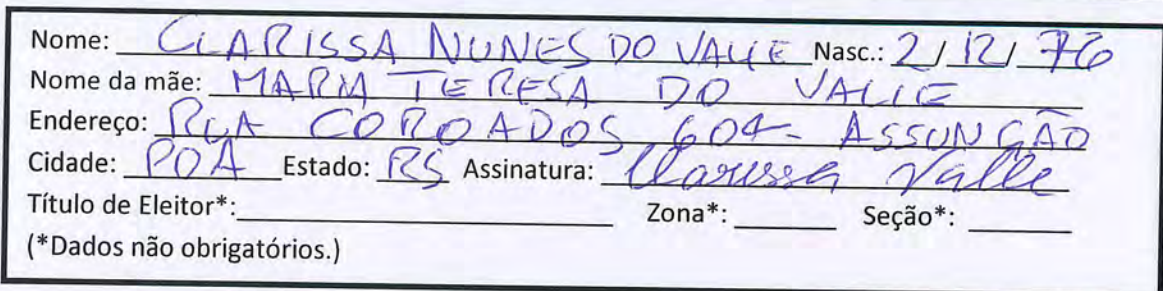 Nome: CLARISSA NUNES DO VALLE Nasc.: 2/12/76
Nome da mãe: MARIA TERESA DO VALLE
Endereço: RUA COROADOS 604 - ASSUNÇÃO
Cidade: POA Estado: RS Assinatura: Clarissa Valle
Título de Eleitor*: Zona*: Seção*:
(*Dados não obrigatórios.)